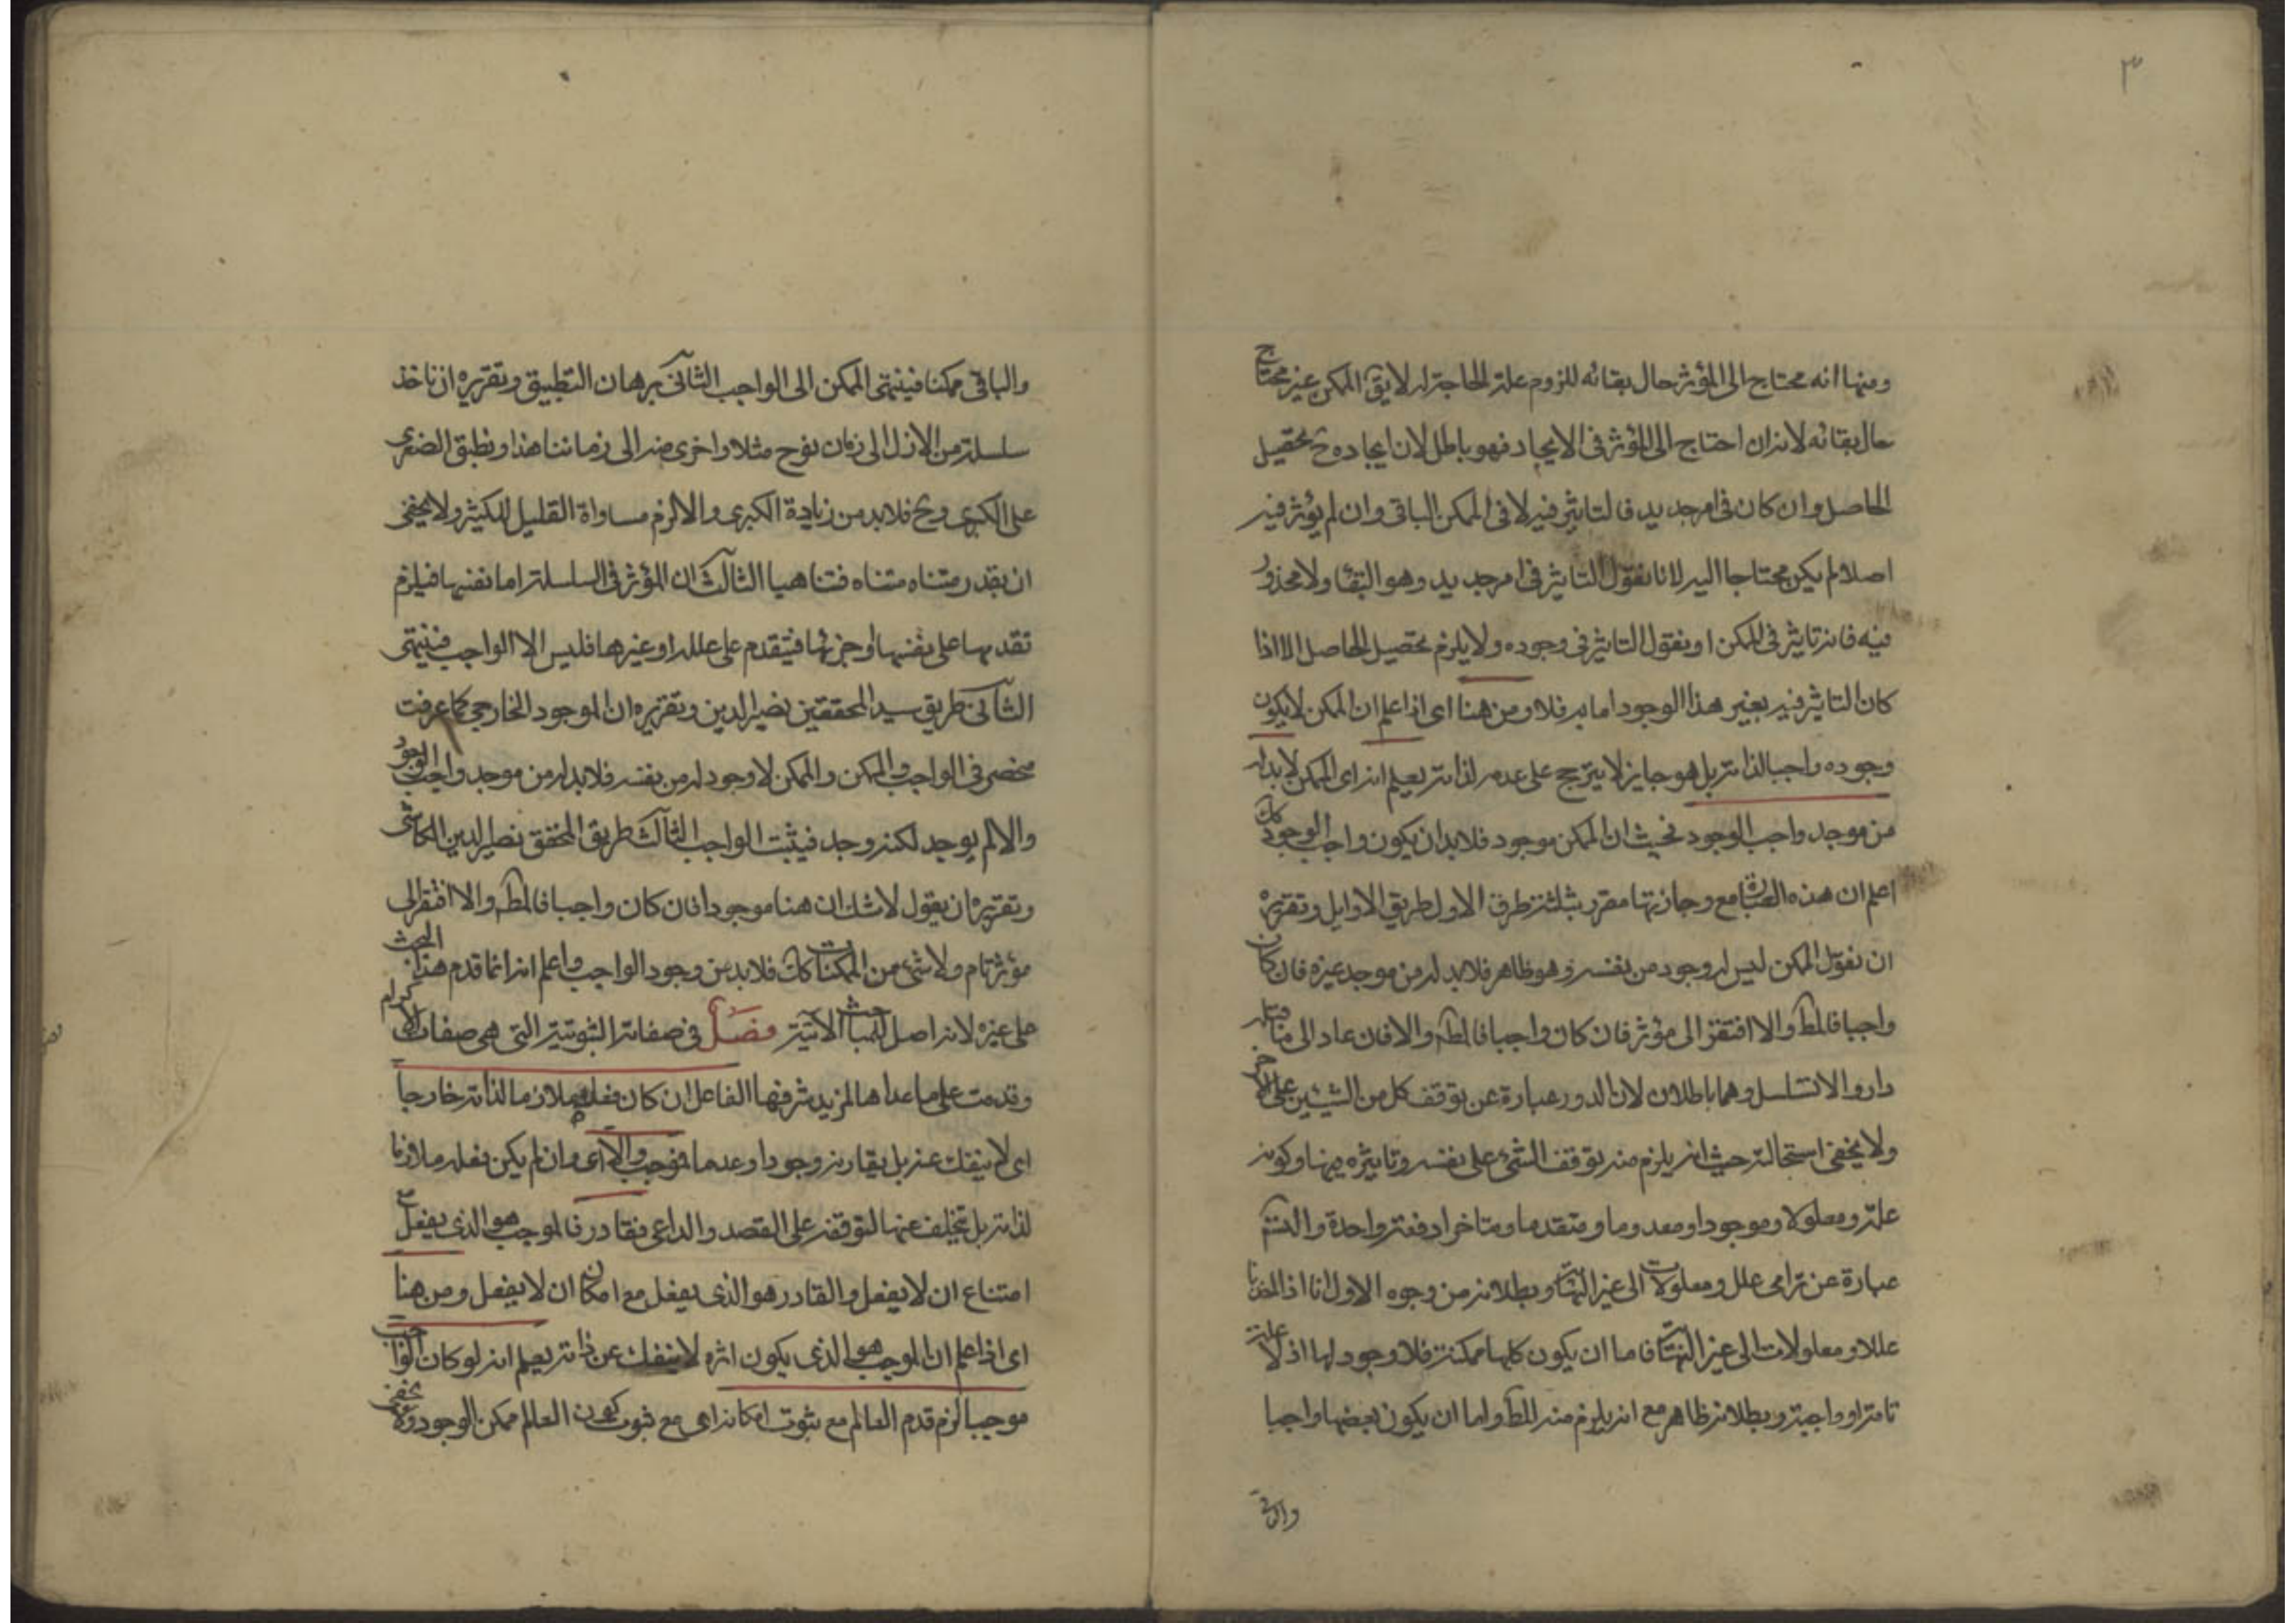 ٣
ومنها انه محتاج الى المؤثر حال بقائه للزوم علة الحاجة له لا يقَ الممكن غير محتاج
حال بقائه لانه ان احتاج الى المؤثر فى الايجاد فهو باطل لان ايجاده ح تحصيل
الحاصل وان كان فى امر جديد فالتاثير فيه لا فى الممكن الباقى وان لم يؤثر فيه
اصلا لم يكن محتاجا اليه لانا نقول التاثير فى امر جديد وهو البقاء ولا محذور
فيه فانه تاثير فى الممكن او نقول التاثير فى وجوده ولا يلزم تحصيل الحاصل الا اذا
كان التاثير فيه بغير هذا الوجود اما به فلا ومن هنا اى اذا علم ان الممكن لا يكون
وجوده واجبا لذاته بل هو جايز لا يترجح على عدمه لذاته يعلم انه اى الممكن لا بد له
من موجد واجب الوجود فحيث ان الممكن موجود فلا بد ان يكون واجب الوجود كك
اعلم ان هذه مع وجازتها مقرر بثلثة طرق الاول طريق الاوايل وتقريره
ان نقول الممكن ليس له وجود من نفسه وهو ظاهر فلا بد له من موجد غيره فان كان
واجبا فالمط والا افتقر الى مؤثر فان كان واجبا فالمط والا فان عاد الى ما قبله
دار والا تسلسل وهما باطلان لان الدور عبارة عن توقف كل من الشيئين على الاخر
ولا يخفى استحالته حيث انه يلزم منه توقف الشئ على نفسه وتاثيره فيها وكونه
علة ومعلولا وموجودا ومعدوما ومتقدما ومتاخرا دفعة واحدة والتسَ
عبارة عن ترامى علل ومعلولات الى غير النهاية وبطلانه من وجوه الاول انا اذا فرضنا
عللا ومعلولات الى غير النهاية فاما ان يكون كلها ممكنة فلا وجود لها اذ لا علة
تامة او واجبة وبطلانه ظاهر مع انه يلزم منه المط واما ان يكون بعضها واجبا
والباقى
والباقى ممكنا فينتهى الممكن الى الواجب الثانى برهان التطبيق وتقريره ان ناخذ
سلسلة من الازل الى زمان نوح مثلا واخرى منه الى زماننا هذا ونطبق الصغرى
على الكبرى وح فلا بد من زيادة الكبرى والا لزم مساواة القليل للكثير ولا يخفى
ان بقدر متناه متناه فتناهيا الثالث ان المؤثر فى السلسلة اما نفسها فيلزم
تقدمها على نفسها او جزئها فيتقدم على علله او غيرها فليس الا الواجب فينتهى
الثانى طريق سيد المحققين نصير الدين وتقريره ان الموجود الخارجى كما عرفت
منحصر فى الواجب والممكن والممكن لا وجود له من نفسه فلا بد له من موجد واجب الوجود
والا لم يوجد لكنه وجد فيثبت الواجب الثالث طريق المحقق نصير الدين الكاشى
وتقريره ان يقول لا شك ان هنا موجودا فان كان واجبا فالمط والا افتقر الى
مؤثر تام ولا شئ من الممكنات كك فلا بد من وجود الواجب واعلم انه انما قدم هذا البحث
على غيره لانه اصل للمباحث الآتية فصل فى صفاته الثبوتية التى هى صفات الاكرام
وقدمت على ما عداها لمزيد شرفها الفاعل ان كان فعله ملازما لذاته خارجا
اى لا ينفك عنه بل يقارنه وجودا وعدما فموجب والا اى وان لم يكن فعله ملازما
لذاته بل تخلف عنها لتوقفه على القصد والداعى فقادر فالموجب هو الذى يفعل مع
امتناع ان لا يفعل والقادر هو الذى يفعل مع امكان ان لا يفعل ومن هنا
اى اذا علم ان الموجب هو الذى يكون اثره لا ينفك عن ذاته يعلم انه لو كان الواجب
موجبا لزم قدم العالم مع ثبوت امكانه اى مع ثبوت كون العالم ممكن الوجود